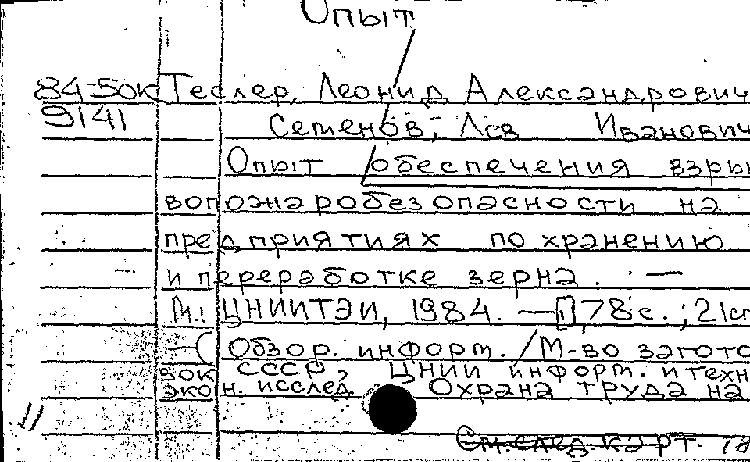 Опыт
84-5ок Теслер, Леонид Александрович
9141 Семенов, Лев Иванович
Опыт обеспечения взры
вопожаробезопасности на
предприятиях по хранению
и переработке зерна. —
М.: ЦНИИТЭИ, 1984. — 78 с.; 21 см
— (Обзор. информ. / М-во загото
вок СССР, ЦНИИ информ. и техн
экон. исслед. Охрана труда на
См. след. карт. 78